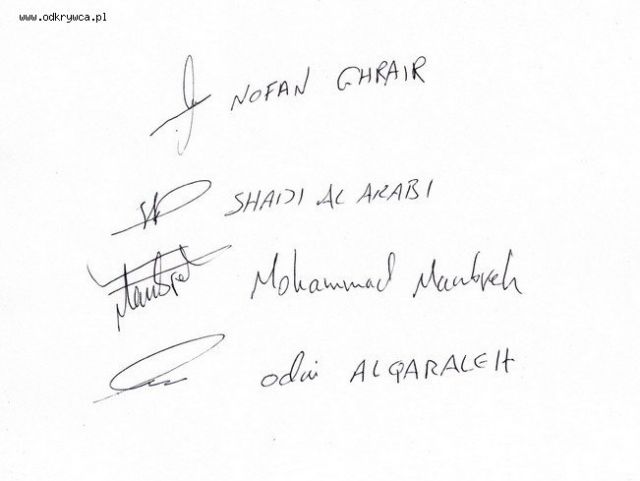 www.odkrywca.pl
NOFAN GHRAIR
SHADI AL ARABI
Mohammad Manbreh
odai ALQARALEH